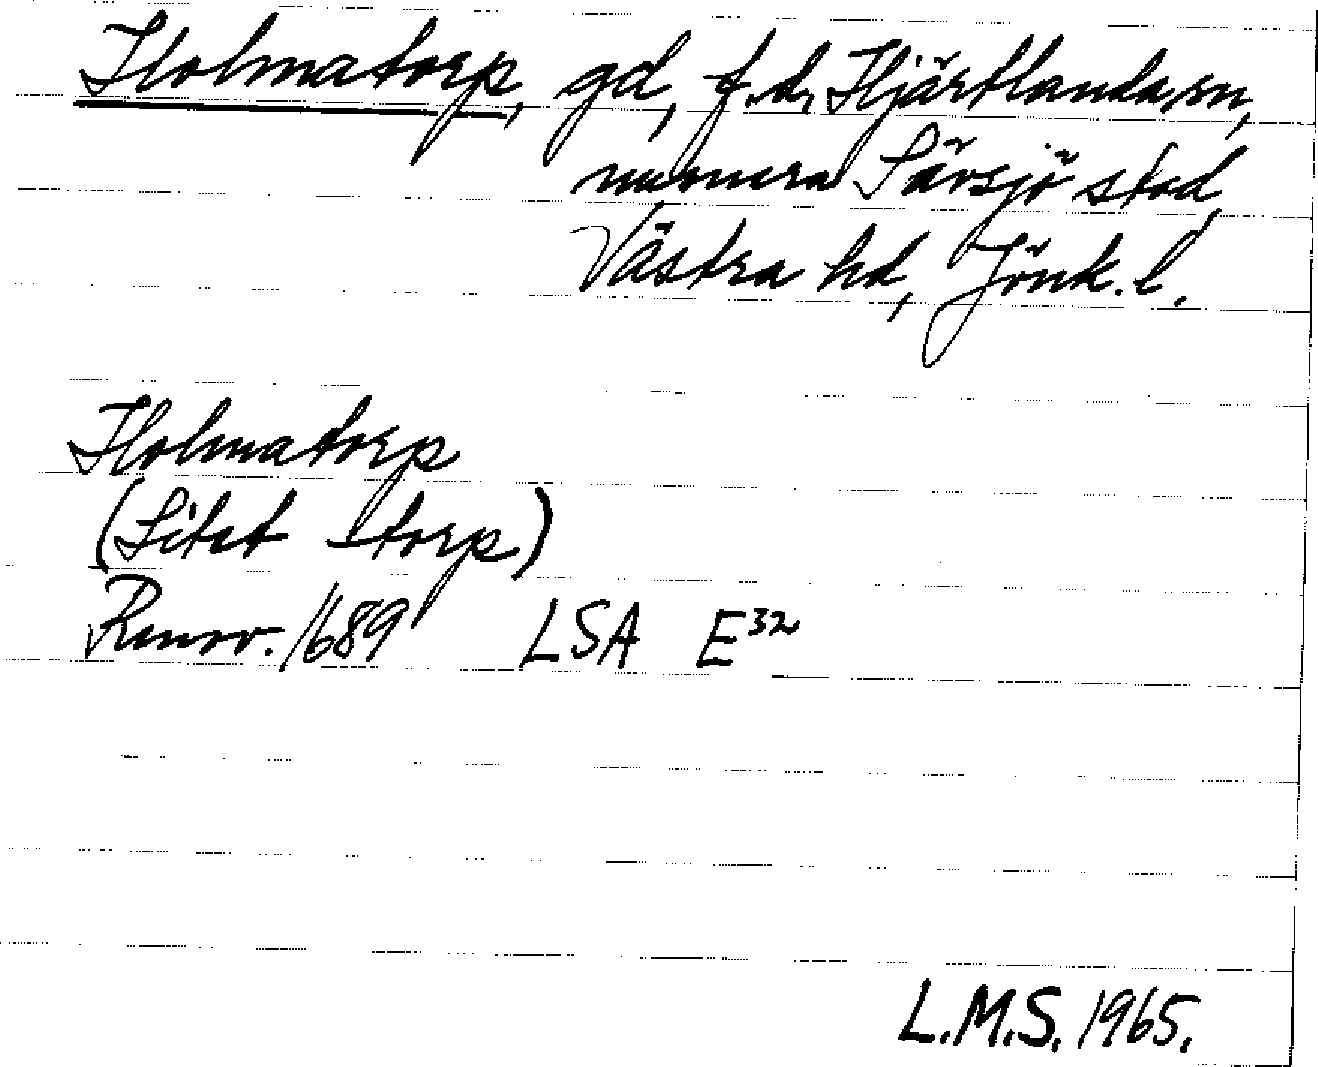 Holmatorp, gd, f.d. Hjärtlanda sn,
numera Sävsjö stad,
Västra hd, Jönk. l.
Holmatorp
(Litet torp)
Renov. 1689 LSA E32
L.M.S. 1965.